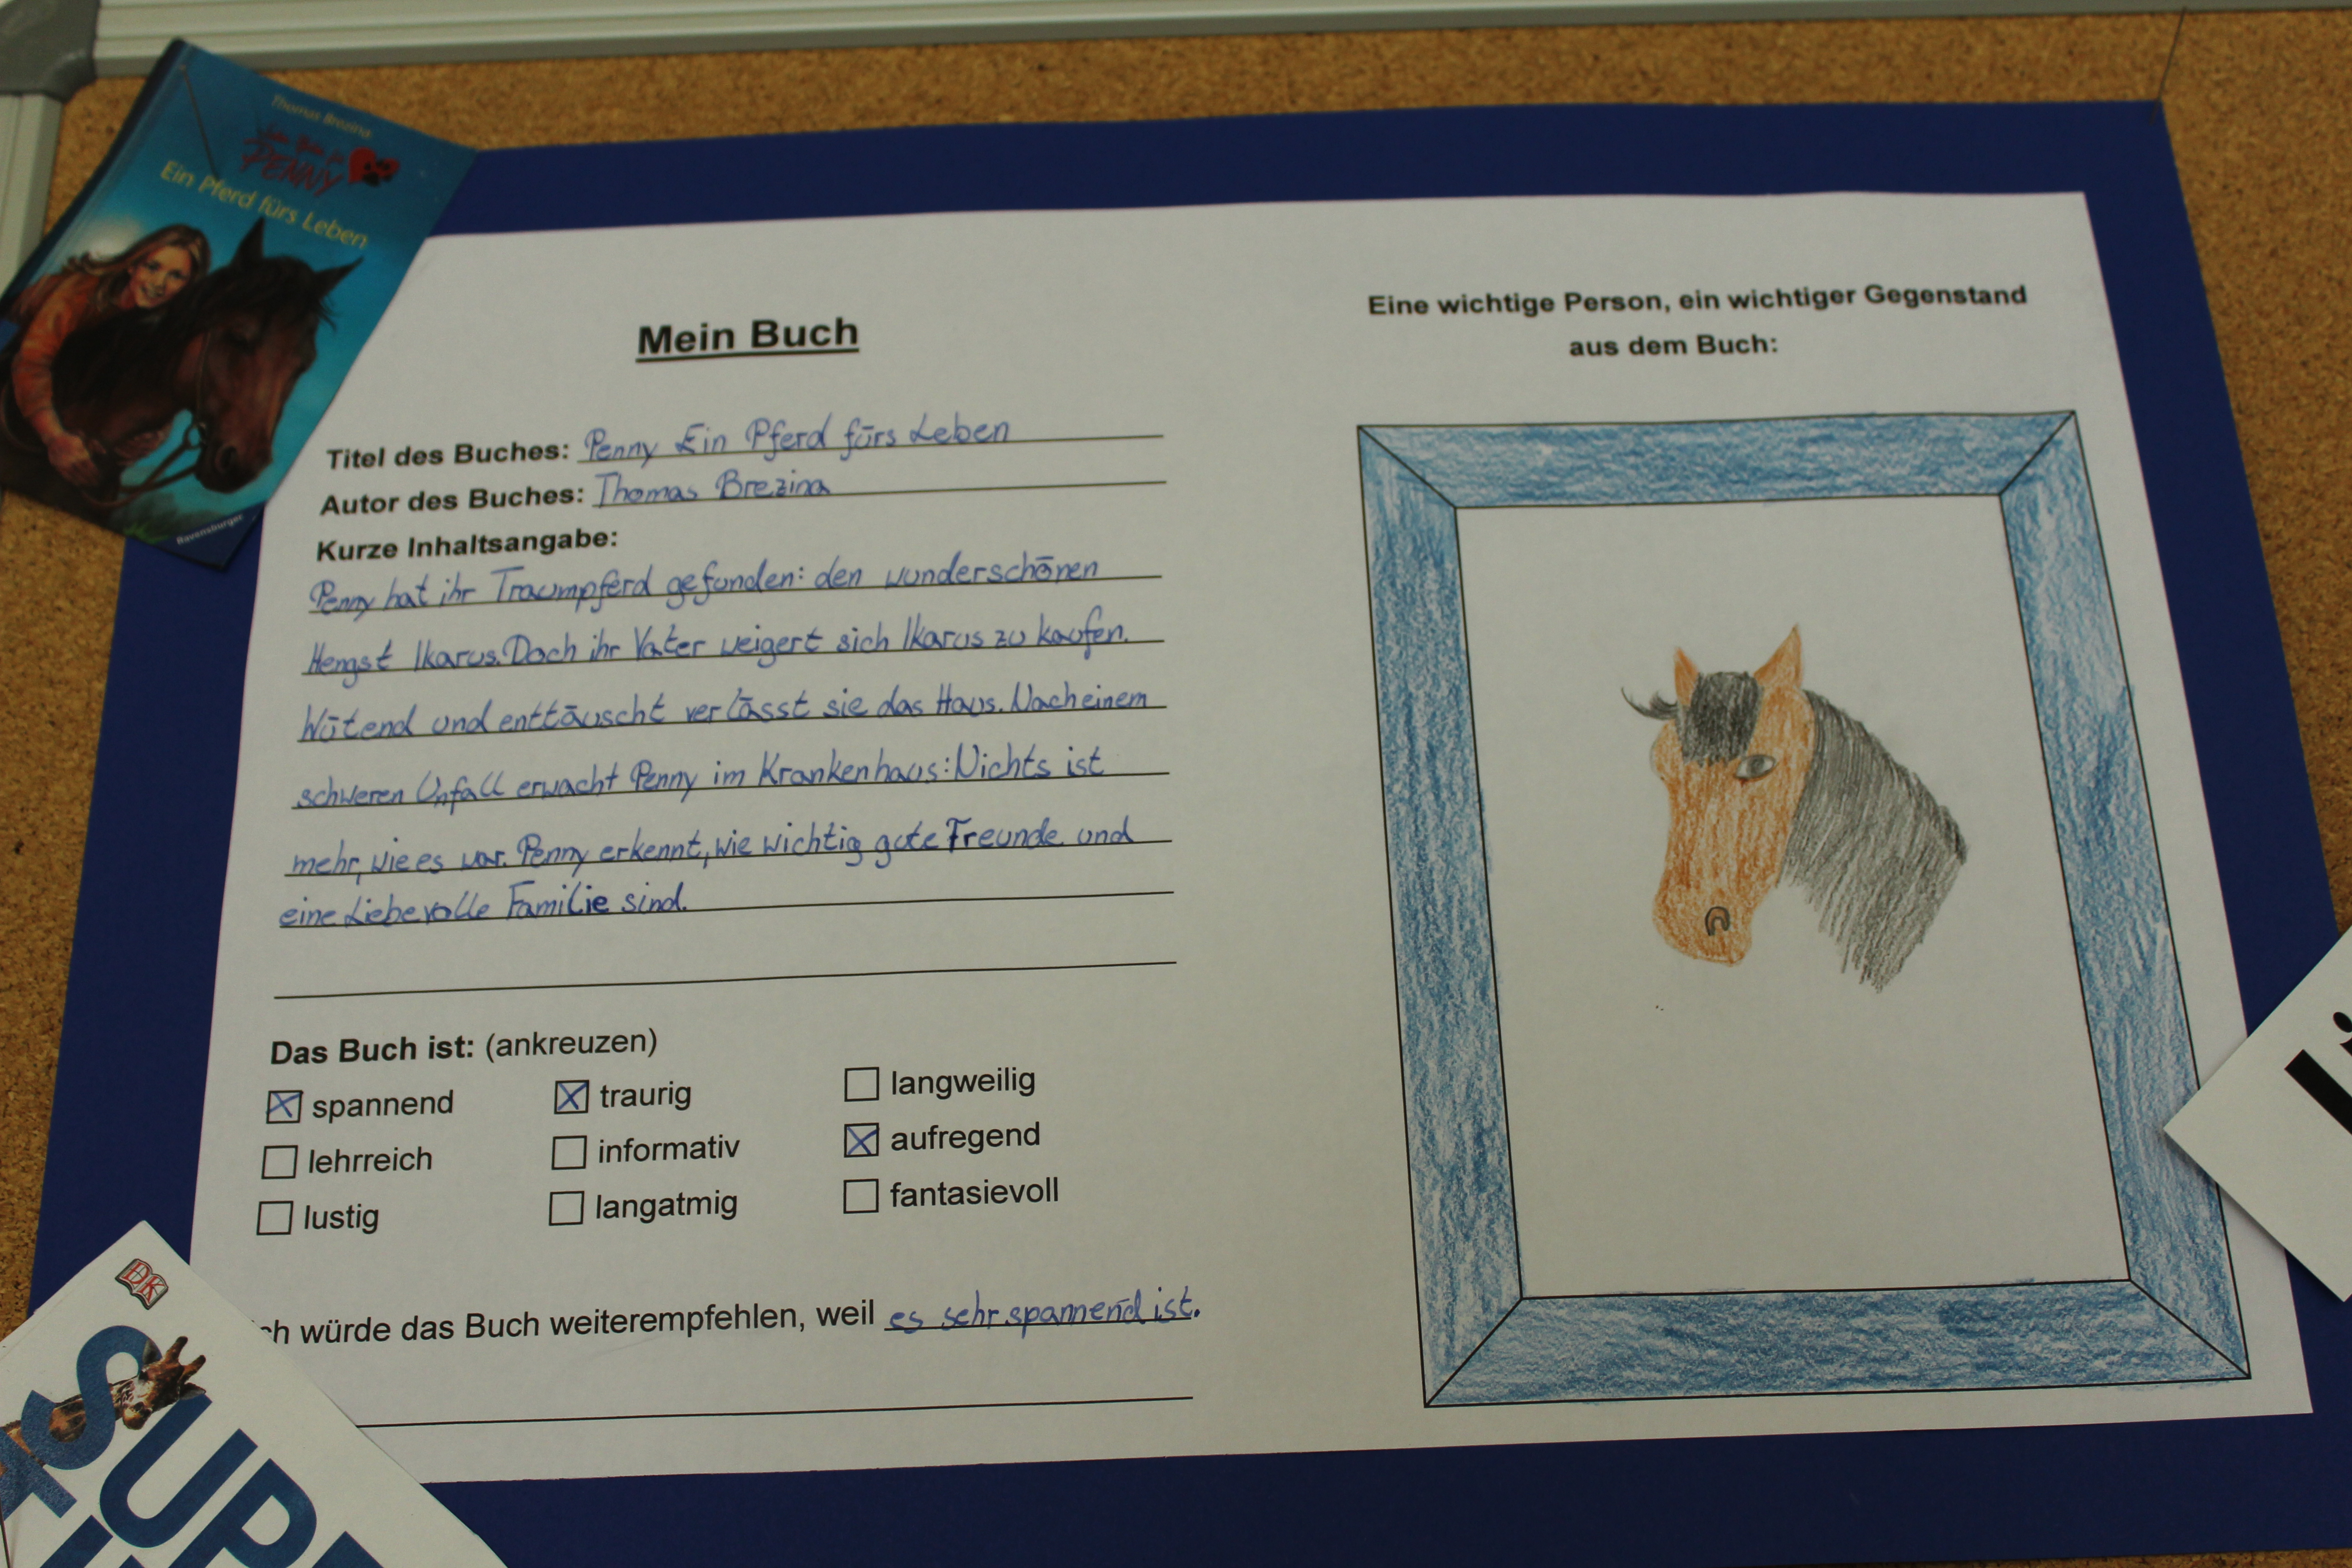 Thomas Brezina
PENNY
Ein Pferd fürs Leben
Ravensburger
Mein Buch
Titel des Buches: Penny Ein Pferd fürs Leben
Autor des Buches: Thomas Brezina
Kurze Inhaltsangabe:
Penny hat ihr Traumpferd gefunden: den wunderschönen
Hengst Ikarus. Doch ihr Vater weigert sich Ikarus zu kaufen.
Wütend und enttäuscht verlässt sie das Haus. Nach einem
schweren Unfall erwacht Penny im Krankenhaus: Nichts ist
mehr, wie es war. Penny erkennt, wie wichtig gute Freunde und
eine Liebevolle Familie sind.
Das Buch ist: (ankreuzen)
spannend traurig langweilig
lehrreich informativ aufregend
lustig langatmig fantasievoll
ch würde das Buch weiterempfehlen, weil es sehr spannend ist.
Eine wichtige Person, ein wichtiger Gegenstand
aus dem Buch:
DK
SUP